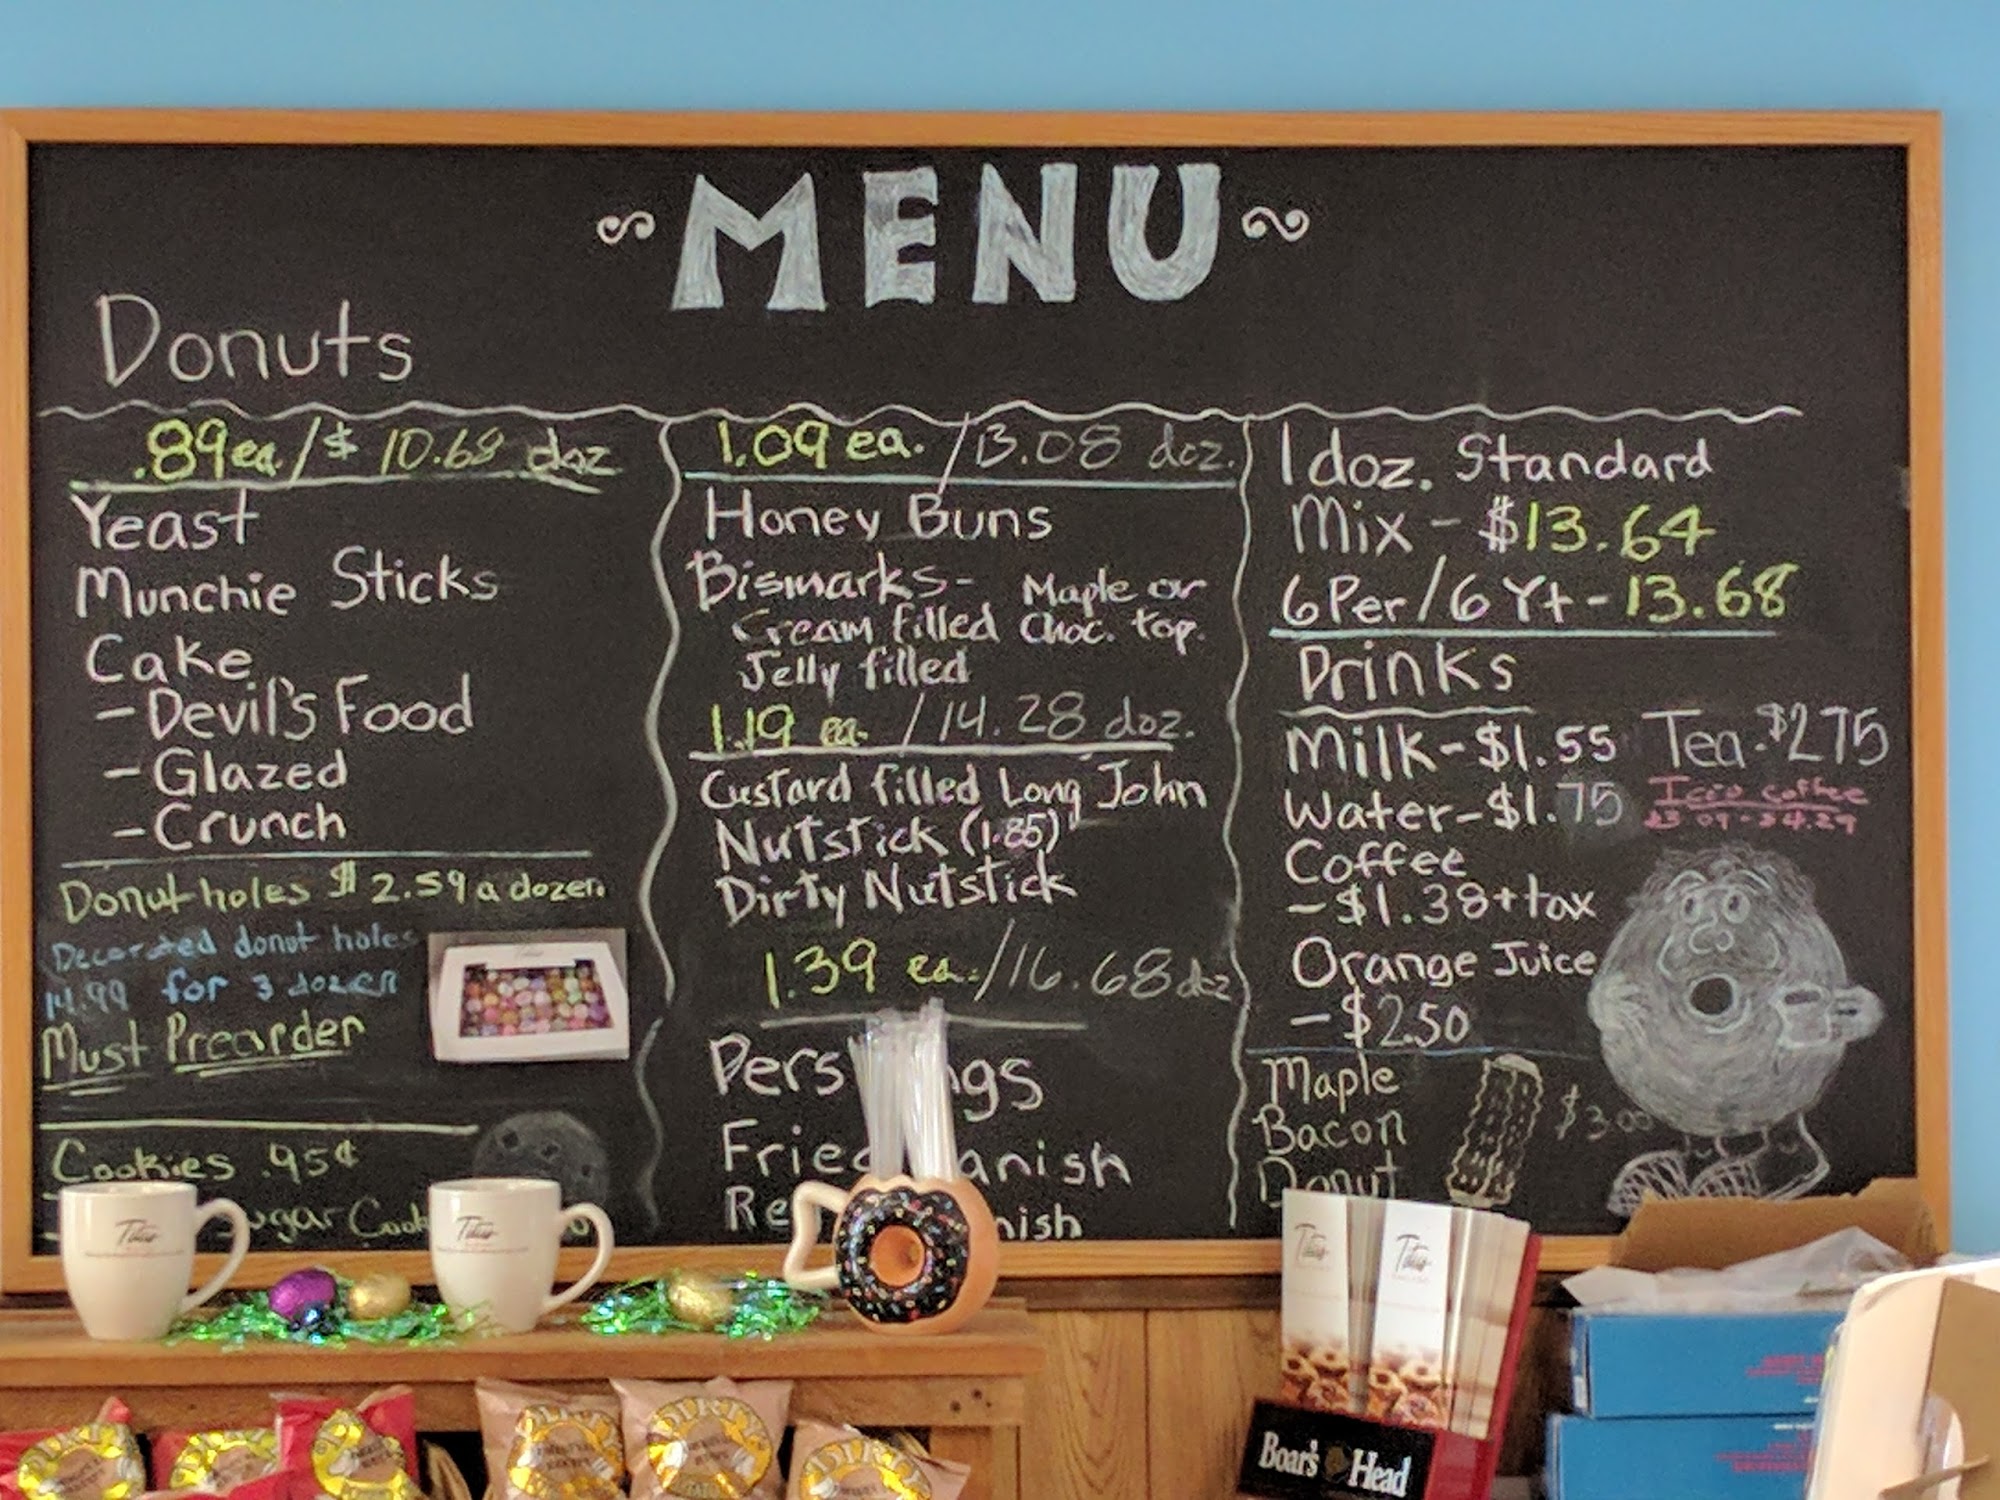 MENU
Donuts
.89 ea. / $ 10.68 doz
Yeast
Munchie Sticks
Cake
- Devil's Food
- Glazed
- Crunch
Donut holes $2.59 a dozen.
Decorated donut holes
14.99 for 3 dozen
Must Preorder
Cookies .95¢
1.09 ea. / 13.08 doz.
Honey Buns
Bismarks - Maple or
Cream filled Choc. top.
Jelly filled
1.19 ea. / 14.28 doz.
Custard filled Long John
Nutstick (1.85)
Dirty Nutstick
1.39 ea. / 16.68 doz
Pers ngs
Fried anish
Re nish
1 doz. Standard
Mix - $13.64
6 Per / 6 Yt - 13.68
Drinks
Milk - $1.55 Tea - $2.75
Water - $1.75 Iced Coffee
Coffee
- $1.38 + tax
Orange Juice
- $2.50
Maple
Bacon $3.00
Donut
Titus
Titus
Titus
Titus
Boar's Head